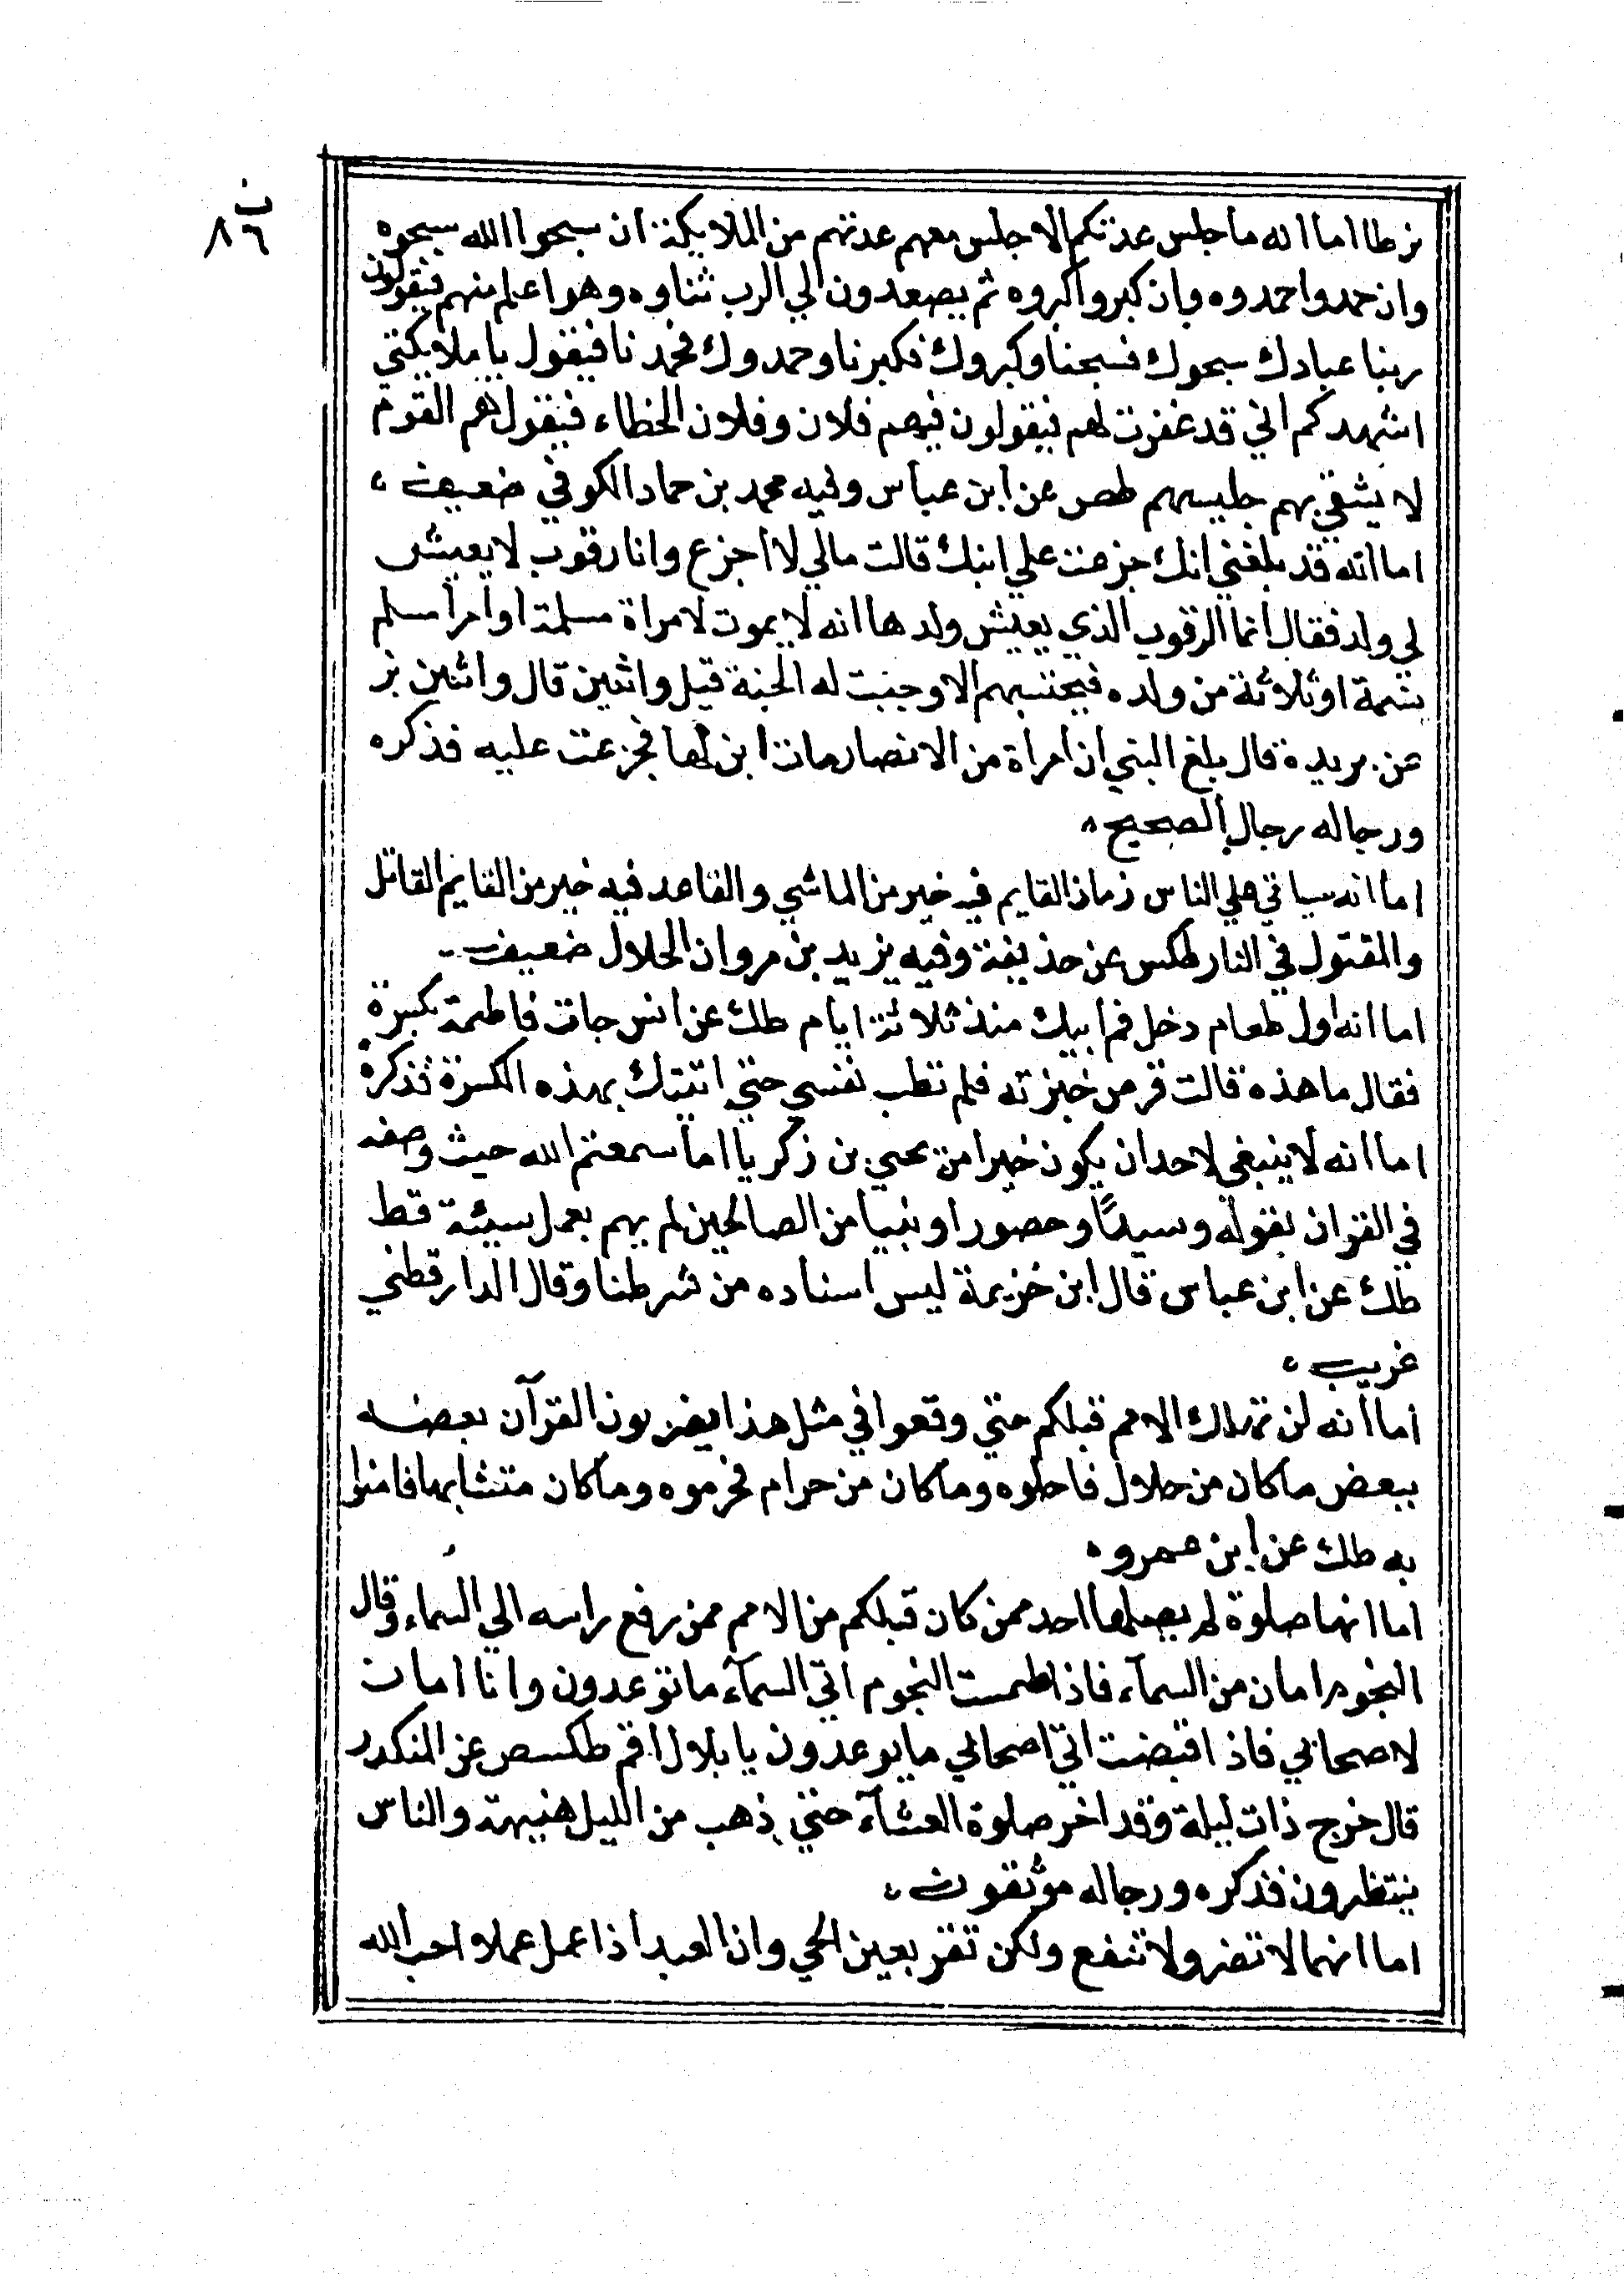 ب
٨٦
فرطا اما انه ما جلس عدتكم الا جلس معهم عدتهم من الملايكة ان سبحوا الله سبحوه
وان حمدوا حمدوه وان كبروا كبروه ثم يصعدون الي الرب ثناوه وهو اعلم منهم فيقولون
ربنا عبادك سبحوك فسبحنا وكبروك فكبرنا وحمدوك فحمدنا فيقول يا ملايكتي
اشهدكم اني قد غفرت لهم فيقولون فيهم فلان وفلان الخطاء فيقول هم القوم
لا يشقي بهم جليسهم طص عن ابن عباس وفيه محمد بن حماد الكوفي ضعيف ،
اما انه قد بلغني انك جزعت علي ابنك قالت مالي لا اجزع وانا رقوب لا يعيش
لي ولد فقال انما الرقوب الذي يعيش ولدها انه لا يموت لامراة مسلمة او امرأ مسلم
نسمة او ثلاثة من ولده فيحتسبهم الا وجبت له الجنة قيل واثنين قال واثنين بز
عن بريدة قال بلغ النبي ان امراة من الانصار مات ابن لها فجزعت عليه فذكره
ورجاله رجال الصحيح ،
اما انه سياتي علي الناس زمان القايم فيه خير من الماشي والقاعد فيه خير من القايم القاتل
والمقتول في النار طكس عن حذيفة وفيه يزيد بن مروان الخلال ضعيف
اما انه اول طعام دخل فم ابيك منذ ثلاثة ايام طك عن انس جات فاطمة بكسرة
فقال ما هذه قالت قرص خبزته فلم تطب نفسي حتي اتيتك بهذه الكسرة فذكره
اما انه لا ينبغي لاحد ان يكون خيرا من يحيي بن زكريا اما سمعتم الله حيث وصفه
في القران بقوله وسيدًا وحصورا ونبيا من الصالحين لم يهم بعمل سيئة قط
طك عن ابن عباس قال ابن خزيمة ليس اسناده من شرطنا وقال الدارقطني
غريب ،
اما انه لن تهلك الامم قبلكم حتي وقعوا في مثل هذا يضربون القرآن بعضه
ببعض ما كان من حلال فاحلوه وما كان من حرام فحرموه وما كان متشابها فامنوا
به طك عن ابن عمرو ،
اما انها صلوة لم يصلها احد ممن كان قبلكم من الامم ممن رفع راسه الي السماء وقال
النجوم امان من السمآء فاذا طمست النجوم اتي السمآء ما توعدون وانا امان
لاصحابي فاذا قبضت اتي اصحابي ما يوعدون يا بلال اقم طكسص عن المنكدر
قال خرج ذات ليلة وقد اخر صلوة العشآء حتي ذهب من الليل هنيهة والناس
ينتظرون فذكره ورجاله موثقون ،
اما انها لا تضر ولا تنفع ولكن تقر بعين الحي وان العبد اذا عمل عملا احب الله